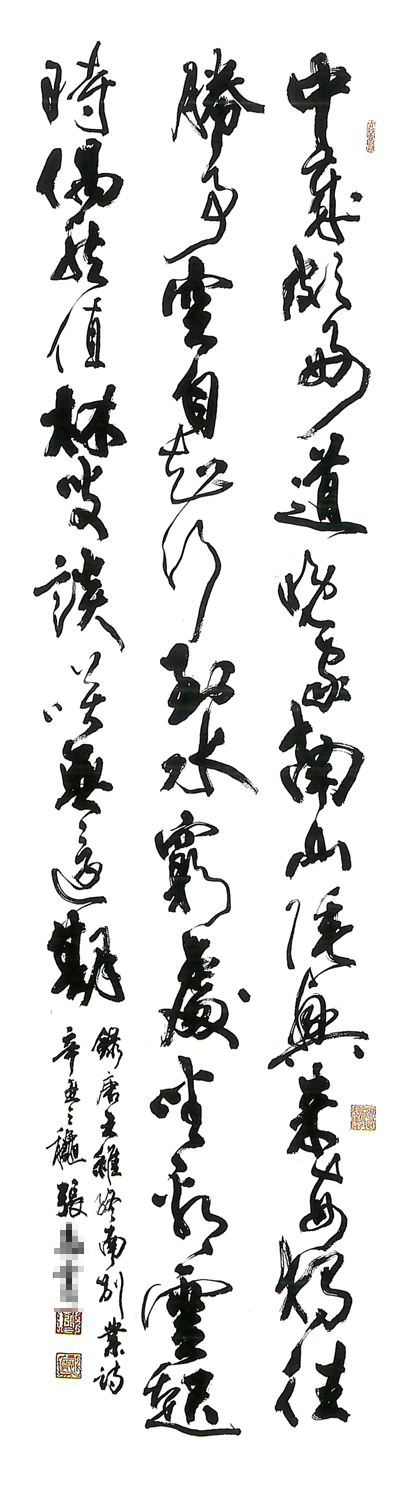 中歲頗好道晚家南山陲興来每獨往
勝事空自知行到水窮處坐看雲起
時偶然值林叟談笑無還期
錄唐王維終南別業詩
辛丑之穐張